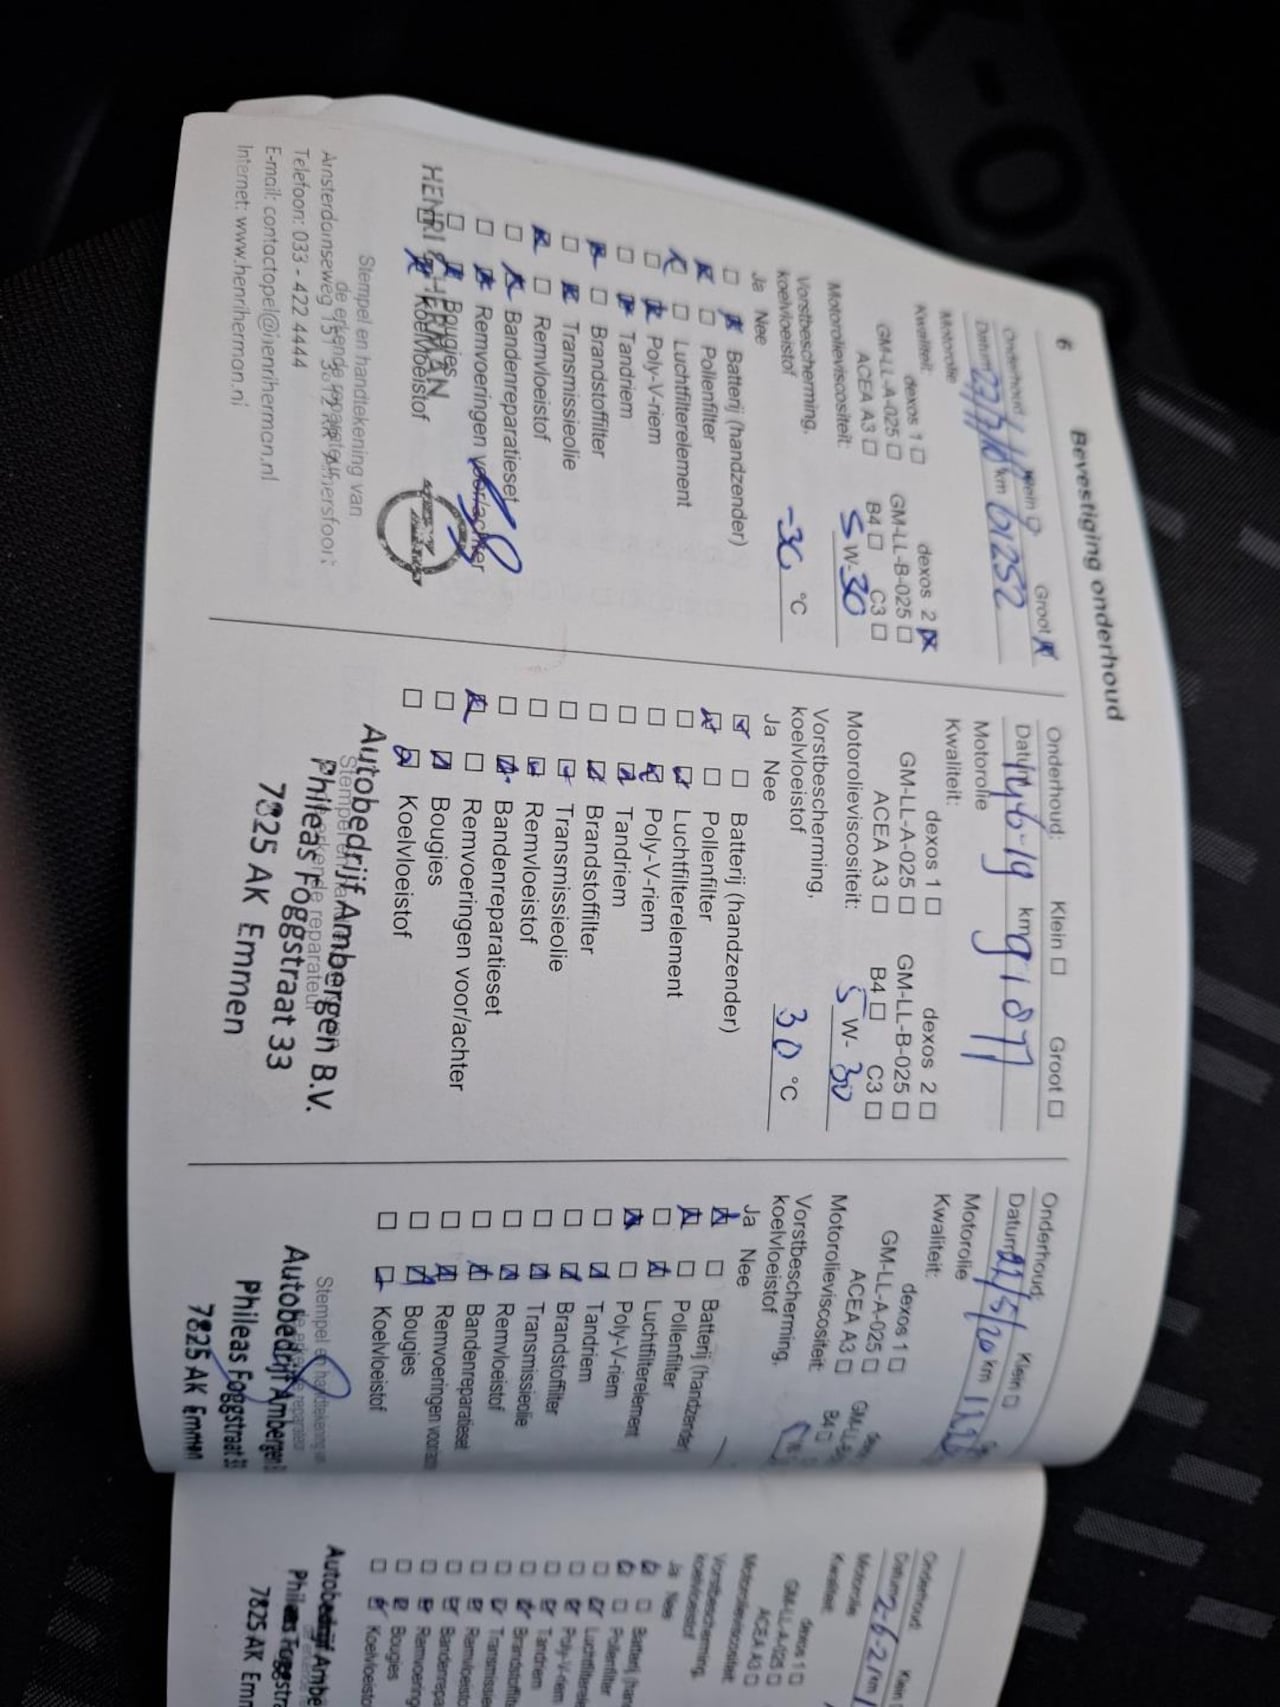 6
Bevestiging onderhoud
Onderhoud: Klein Groot
Datum km 61252
Motorolie
Kwaliteit:
dexos 1 dexos 2
GM-LL-A-025 GM-LL-B-025
ACEA A3 B4 C3
Motorolieviscositeit: 5 W-30
Vorstbescherming,
koelvloeistof -30 °C
Ja Nee
Batterij (handzender)
Pollenfilter
Luchtfilterelement
Poly-V-riem
Tandriem
Brandstoffilter
Transmissieolie
Remvloeistof
Bandenreparatieset
Remvoeringen voor/achter
Bougies
Koelvloeistof
HENRI HERMAN
Stempel en handtekening van
de erkende reparateur
Amsterdamseweg Amersfoort
Telefoon: 033 - 422 4444
E-mail: contactopel@henriherman.nl
Internet: www.henriherman.nl
Onderhoud: Klein Groot
Datum 14-6-19 km 91877
Motorolie
Kwaliteit:
dexos 1 dexos 2
GM-LL-A-025 GM-LL-B-025
ACEA A3 B4 C3
Motorolieviscositeit: 5 W- 30
Vorstbescherming,
koelvloeistof 30 °C
Ja Nee
Batterij (handzender)
Pollenfilter
Luchtfilterelement
Poly-V-riem
Tandriem
Brandstoffilter
Transmissieolie
Remvloeistof
Bandenreparatieset
Remvoeringen voor/achter
Bougies
Koelvloeistof
Stempel en
erkende reparateur
Autobedrijf Ambergen B.V.
Phileas Foggstraat 33
7825 AK Emmen
Onderhoud: Klein
Datum /5/20 km
Motorolie
Kwaliteit:
dexos 1
GM-LL-A-025
ACEA A3 B4
Motorolieviscositeit:
Vorstbescherming,
koelvloeistof
Ja Nee
Batterij (handzender
Pollenfilter
Luchtfilterelement
Poly-V-riem
Tandriem
Brandstoffilter
Transmissieolie
Remvloeistof
Bandenreparatieset
Remvoeringen
Bougies
Koelvloeistof
Stempel en handtekening
Autobedrijf Ambergen
Phileas Foggstraat 33
7825 AK Emmen
Onderhoud: Klein
Datum 2-6-21 km
Motorolie
Kwaliteit:
dexos 1
GM-LL-A-025
ACEA A3
Motorolieviscositeit:
Vorstbescherming,
koelvloeistof
Ja Nee
Batterij
Pollenfilter
Poly-V-riem
Tandriem
Remvloeistof
Bougies
7825 AK